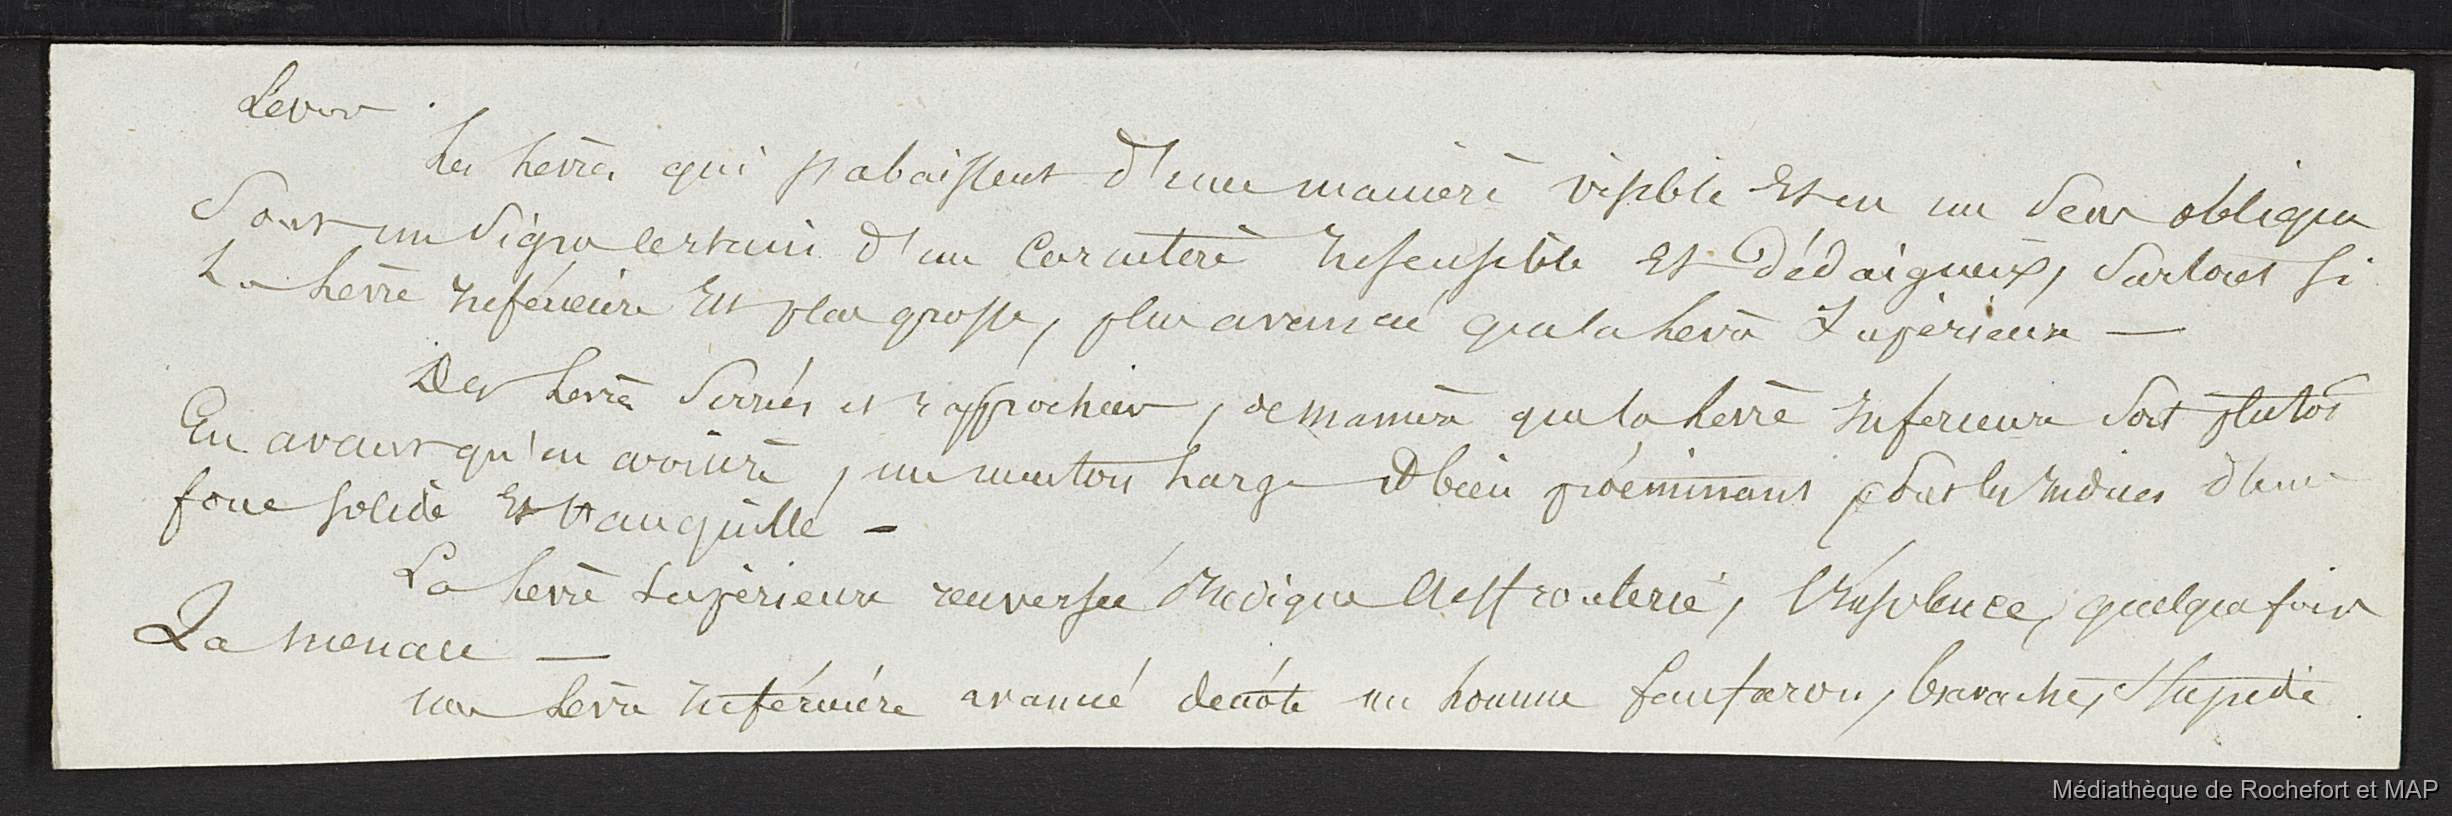 Levre
Les levres qui s'abaissent d'une maniere visible et en un sens oblique
sont un signe certain d'un caractere insensible et dédaigneux, surtout si
la levre inférieure est plus grosse, plus avancée que la levre supérieure —
Des levres serrées et rapprochées, de maniere que la levre inferieure soit plutot
en avant qu'en arriere, un menton large et bien proéminant, sont les indices d'une
force solide et tranquille —
La levre superieure renversée indique l'effronterie, l'insolence, quelquefois
La menace —
une levre inférieure avancé denote un homme fanfaron, bravache, stupide
Médiathèque de Rochefort et MAP